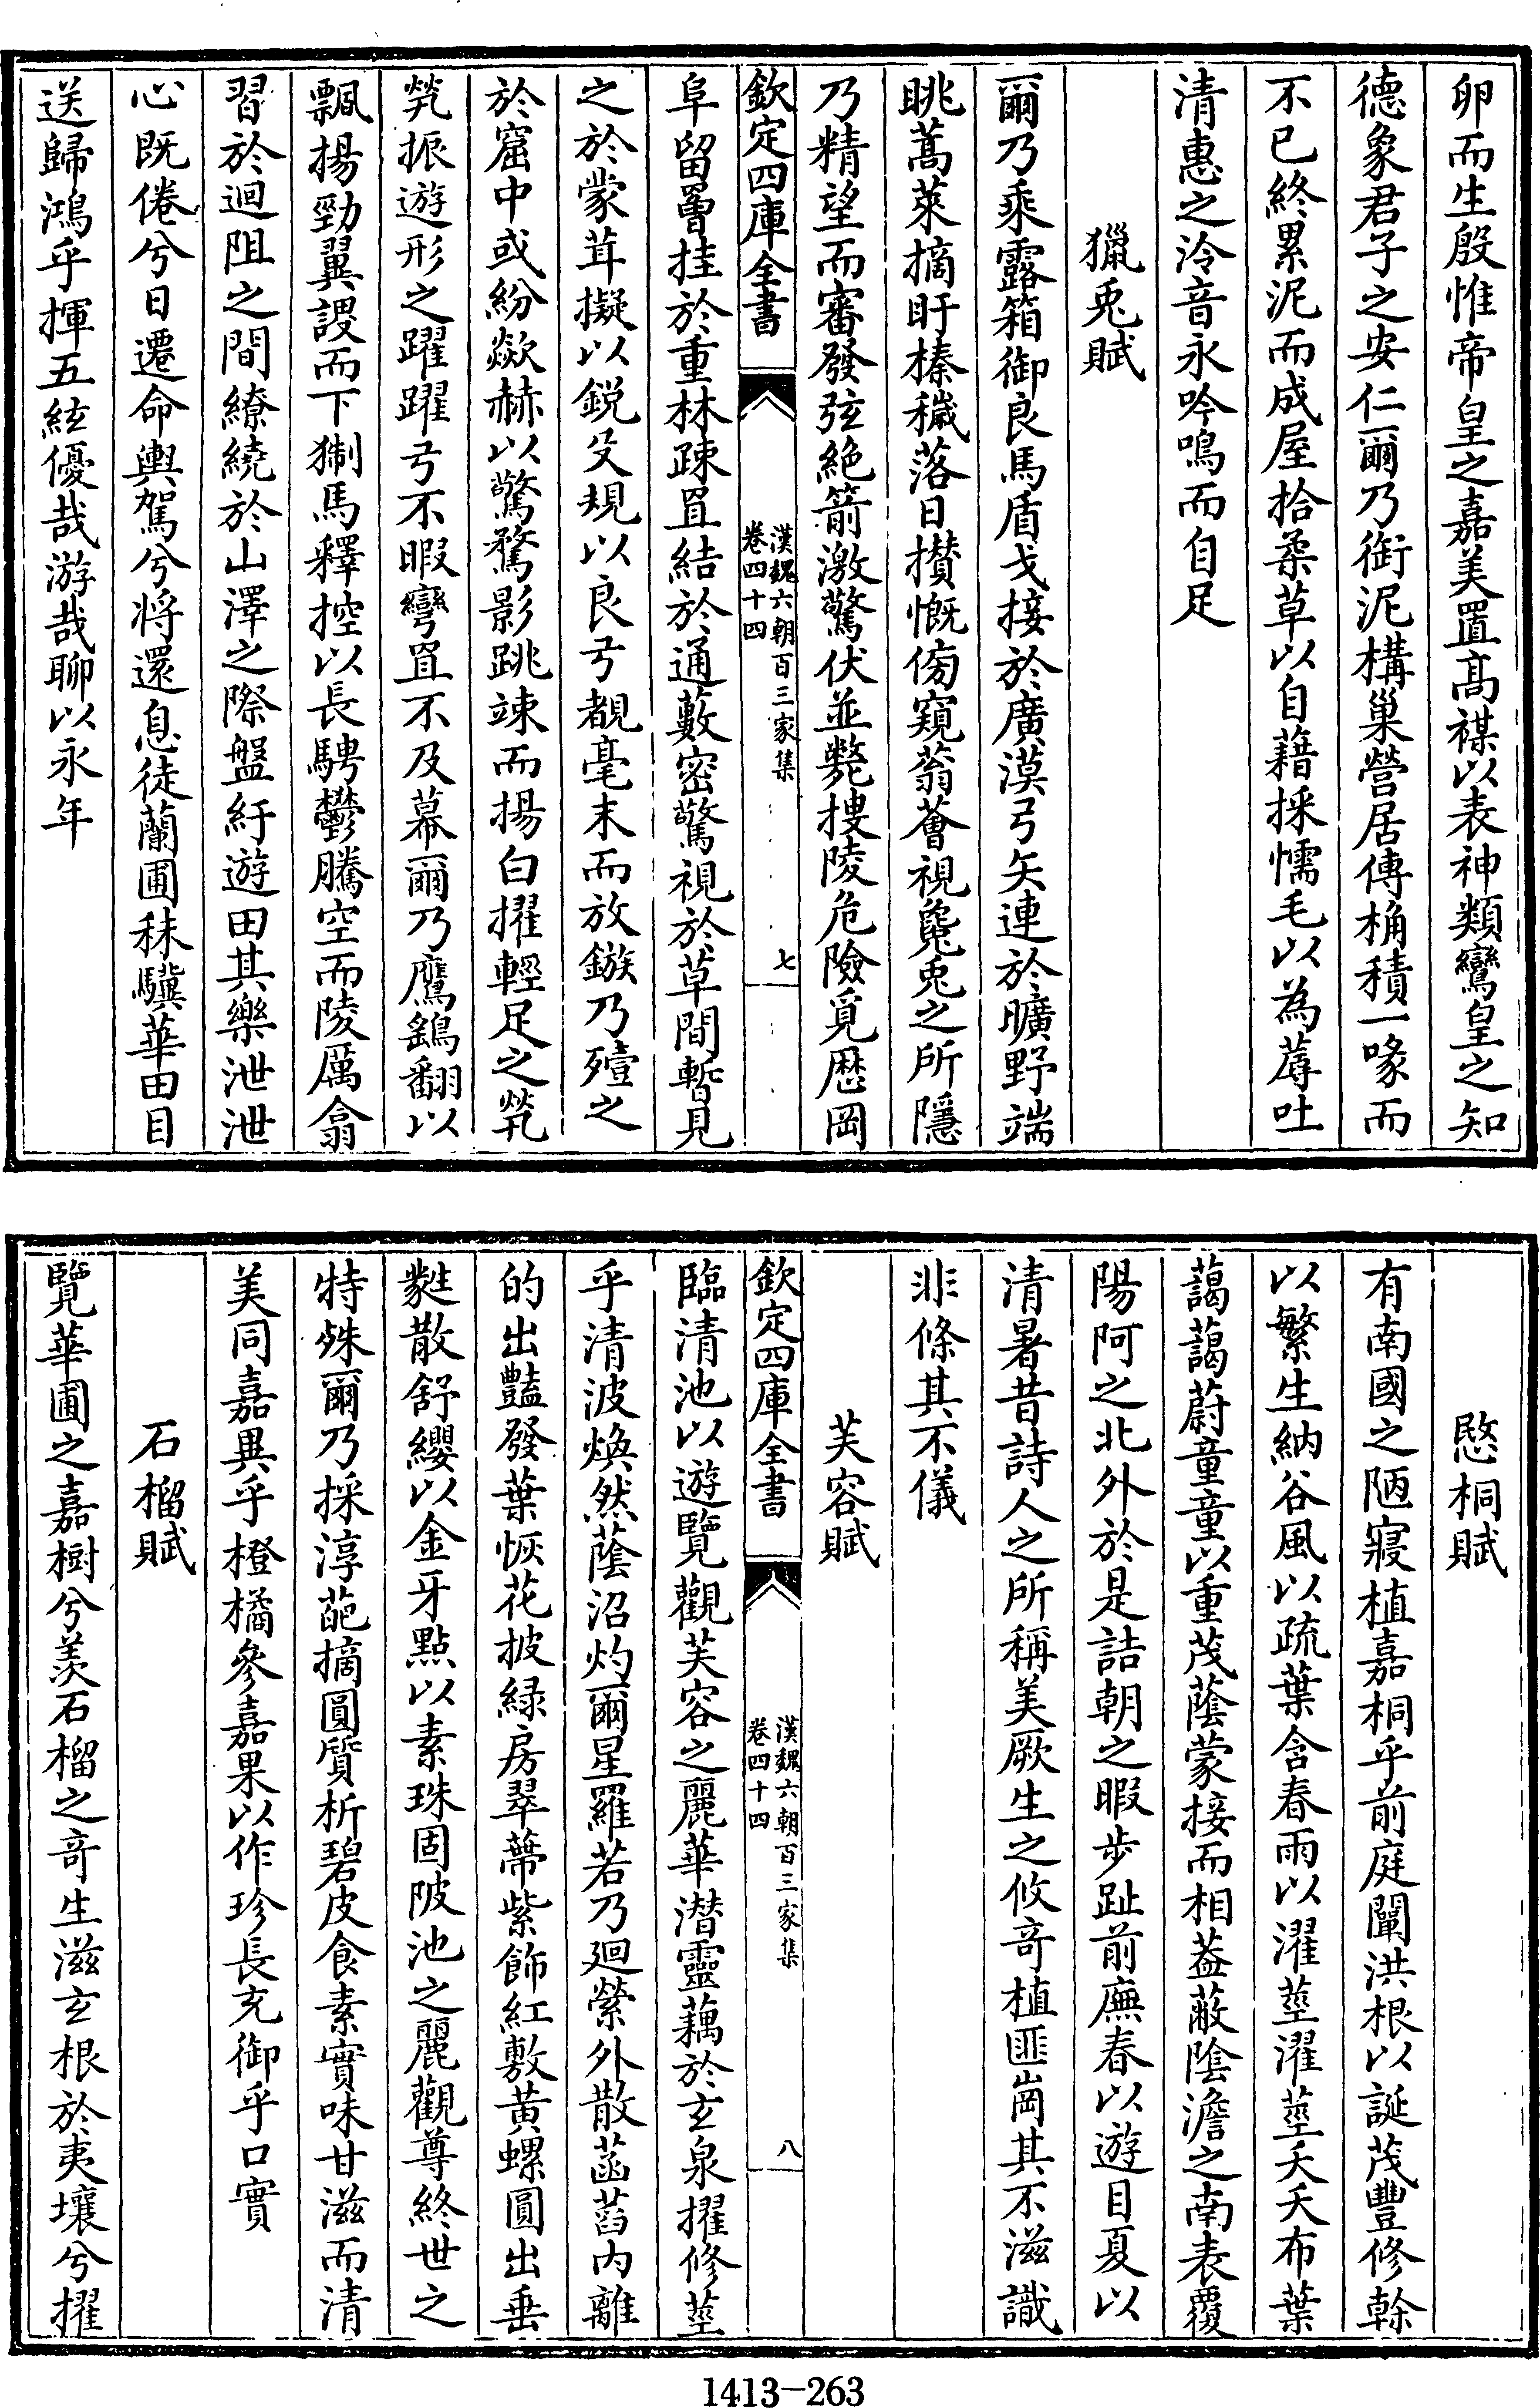 卵而生殷惟帝皇之嘉美置髙禖以表神類鸞皇之知
德象君子之安仁爾乃銜泥構巢營居傅桷積一喙而
不已終累泥而成屋拾柔草以自藉採懦毛以為蓐吐
清惠之泠音永吟鳴而自足
獵兎賦
爾乃乘露箱御良馬盾戈接於廣漠弓矢連於曠野端
眺蒿萊摘盱榛穢落日攅慨傍窺蓊薈視毚兎之所隱
乃精望而審發弦絶箭激驚伏並斃摟陵危險覓歴岡
欽定四庫全書
漢魏六朝百三家集
卷四十四
七
阜留罿挂於重林疎罝結於通藪密驚視於草間暫見
之於蒙茸擬以鋭殳規以良弓覩毫末而放鏃乃殪之
於窟中或紛歘赫以驚騖影跳竦而揚白擢輕足之煢
煢振遊形之躍躍弓不暇彎罝不及幕爾乃鷹鷂翻以
飄揚勁翼謖而下猘馬釋控以長騁鬱騰空而陵厲翕
習於迴阻之間繚繞於山澤之際盤紆遊田其樂泄泄
心既倦兮日遷命輿駕兮将還息徒蘭圃秣驥華田目
送歸鴻乎揮五絃優哉游哉聊以永年
愍桐賦
有南國之陋寢植嘉桐乎前庭闡洪根以誕茂豐修榦
以繁生納谷風以疏葉含春雨以濯莖濯莖夭夭布葉
藹藹蔚童童以重茂蔭蒙接而相葢蔽陰澹之南表覆
陽阿之北外於是詰朝之暇步趾前廡春以遊目夏以
清暑昔詩人之所稱美厥生之攸竒植匪崗其不滋識
非條其不儀
芙容賦
欽定四庫全書
漢魏六朝百三家集
卷四十四
八
臨清池以遊覽觀芙容之麗華潛靈藕於玄泉擢修莖
乎清波煥然蔭沼灼爾星羅若乃廻縈外散菡萏内離
的出豔發葉恢花披緑房翠蔕紫飾紅敷黃螺圓出垂
蕤散舒纓以金牙點以素珠固陂池之麗觀尊終世之
特殊爾乃採淳葩摘圓質析碧皮食素實味甘滋而清
美同嘉異乎橙橘參嘉果以作珍長充御乎口實
石榴賦
覽華圃之嘉樹兮羨石榴之竒生滋玄根於夷壤兮擢
1413—263